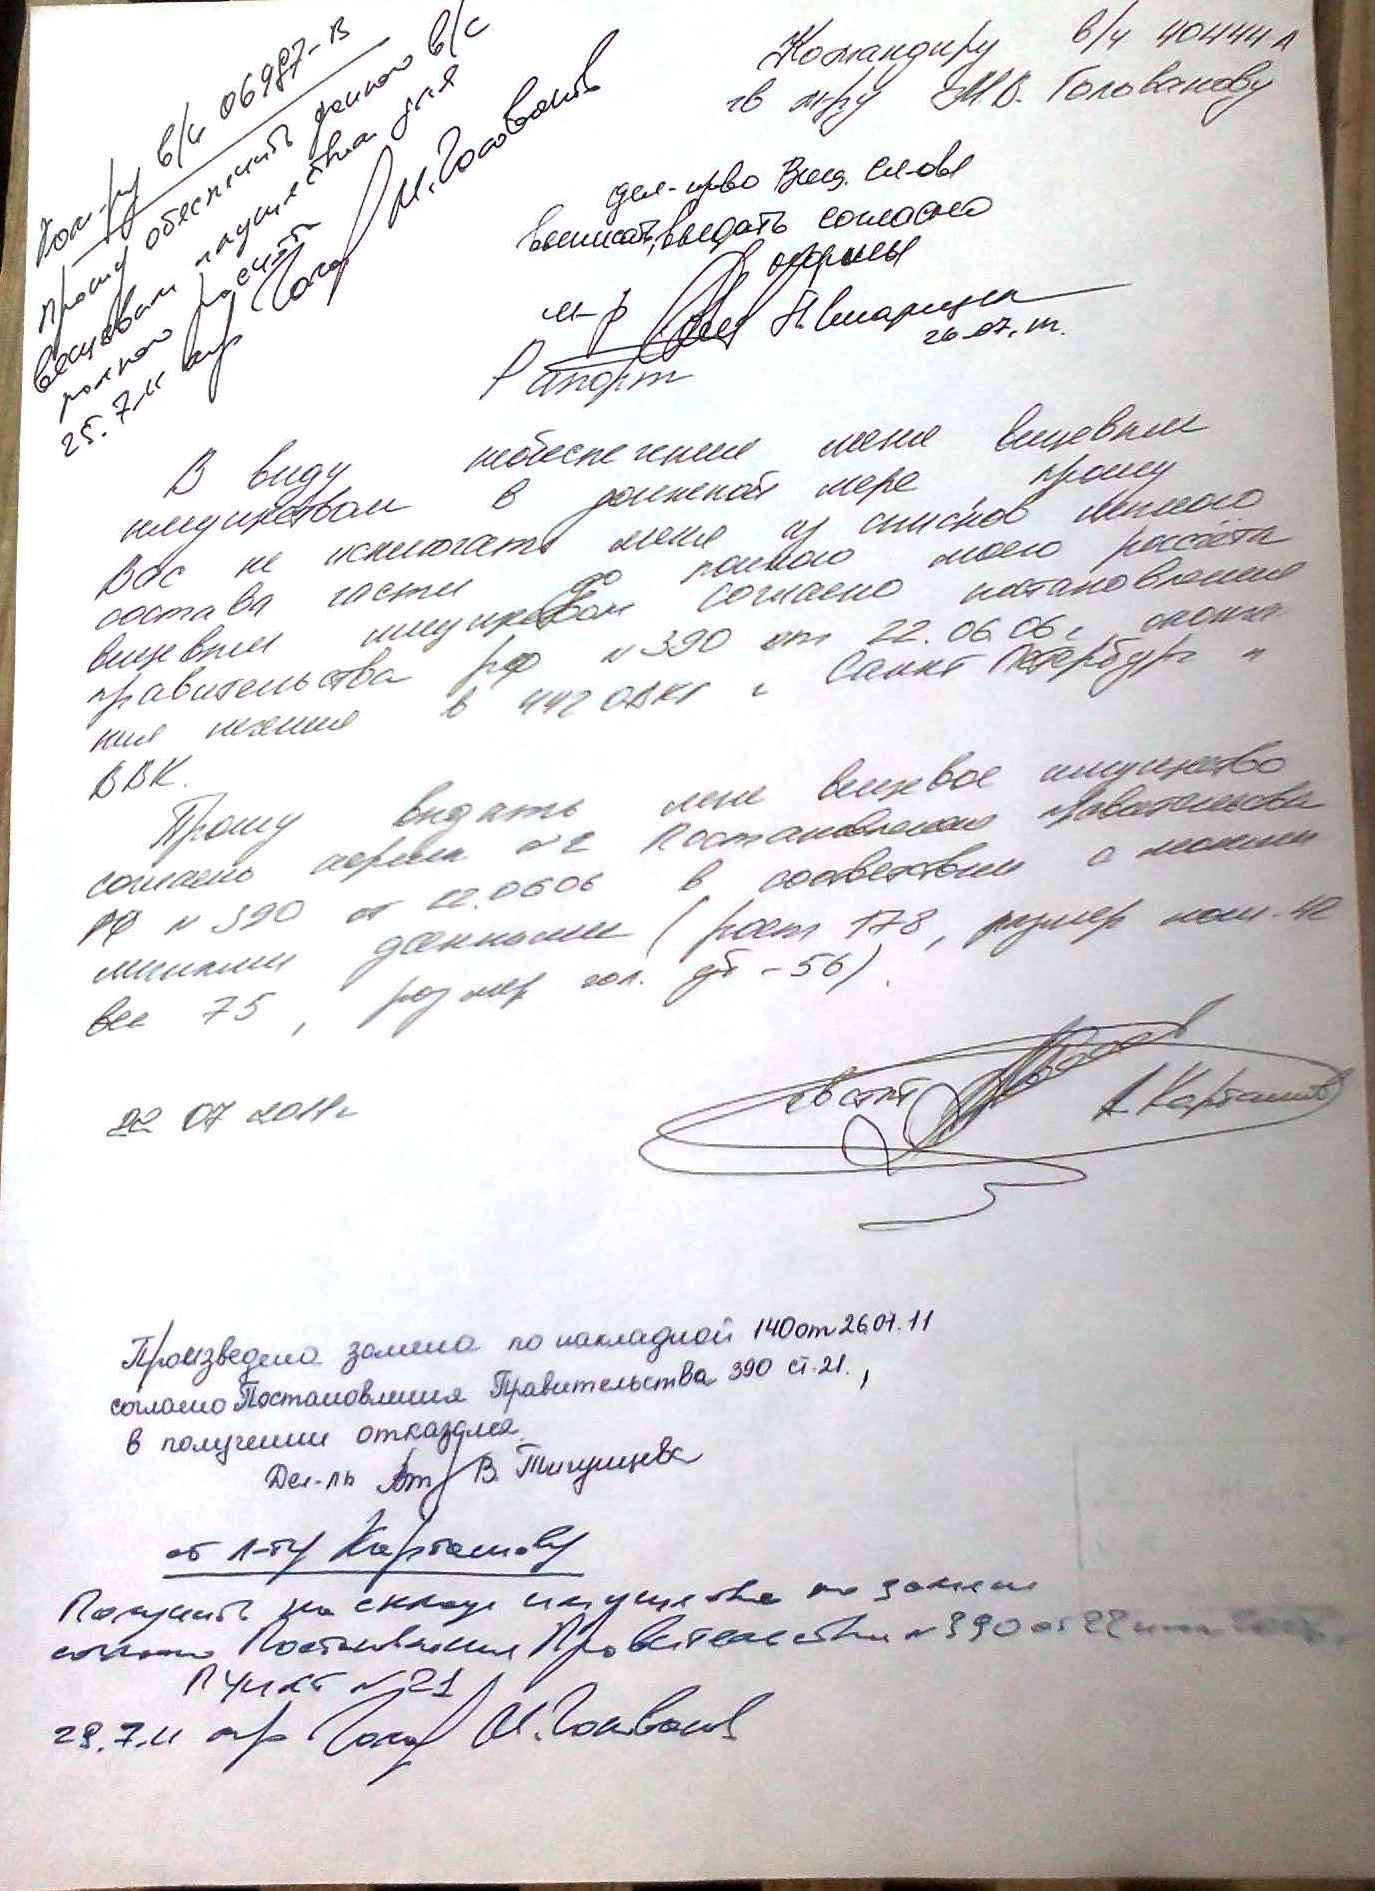 Ком-ру в/ч 06987-В
Прошу обеспечить данного в/с
вещевым имуществом для
полного расчета
25.7.11 м-р М. Голованов
Командиру в/ч 40444 А
гв м-ру М.В. Голованову
дел-прво Вещ. сл-бы
выписать, выдать согласно
нормы
м-р
26.07.11г.
Рапорт
В виду необеспечение меня вещевым
имуществом в должной мере прошу
Вас не исключать меня из списков личного
состава части до полного моего рассчёта
вещевым имуществом согласно постановления
правительства РФ N 390 от 22.06.06г, оконча-
ния лечения в 442 ОВКГ г Санкт Петербург и
ВВК.
Прошу выдать мне вещевое имущество
согласно нормы №2 Постановления правительства
РФ N 390 от 22.0606 в соответствии с моими
личными данными (рост 178, размер нош. 42
вес 75, размер гол. уб - 56).
22 07 2011г
гв ст л-т А Карташов
Произведена замена по накладной 140 от 26.07.11
согласно Постановления Правительства 390 ст.21.,
в получении отказался.
Дел-ль В. Тигунцева
ст л-ту Карташову
Получить на складе имущество по замене
согласно Постановления Правительства № 390 от 22 июня
пункт № 21
29.7.11 м-р М. Голованов